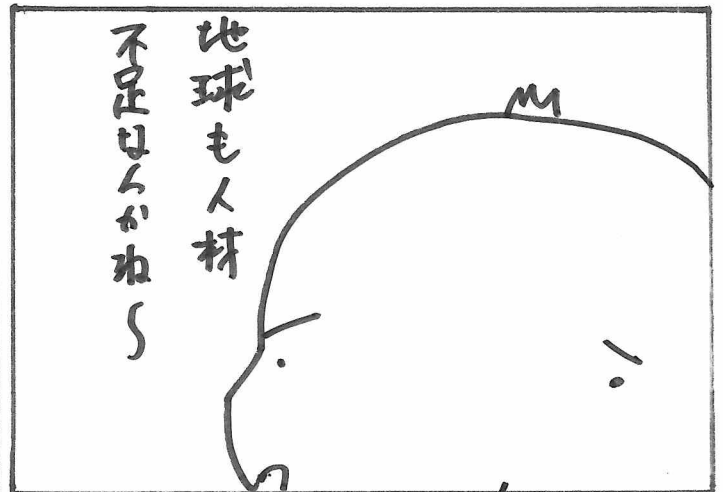 地球も人材
不足なんかね〜